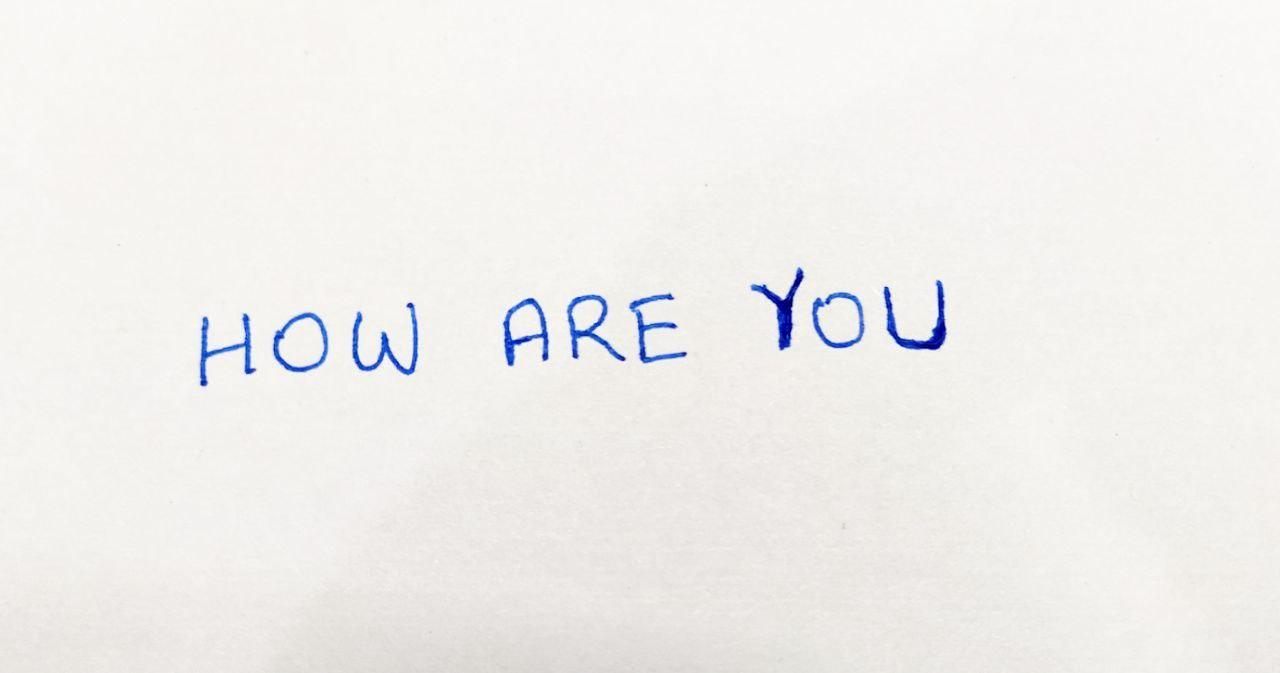 HOW ARE YOU